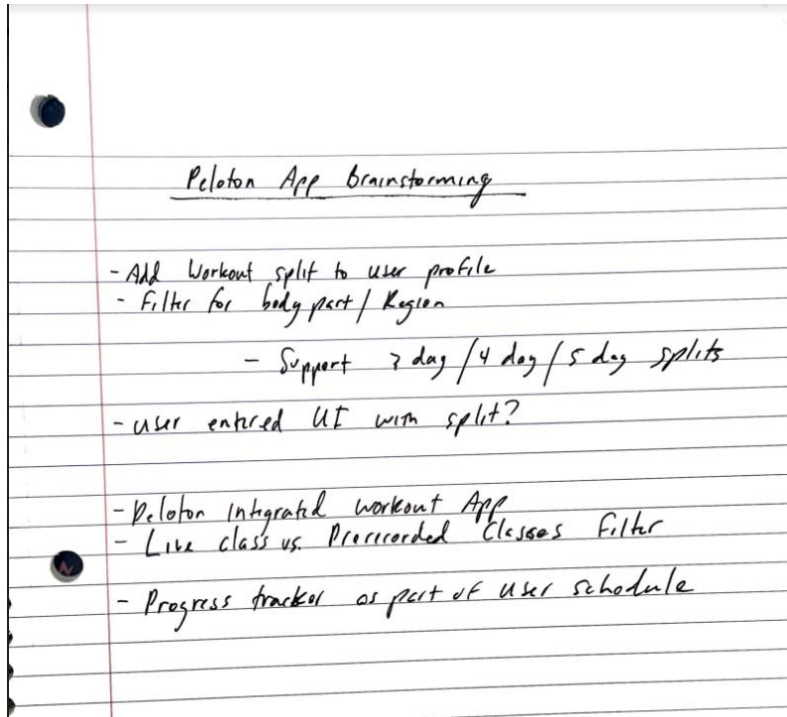 Peloton App Brainstorming
- Add Workout split to user profile
- Filter for body part / Region
- Support 3 day / 4 day / 5 day splits
- user entered UI with split?
- Peloton Integrated workout App
- Live class vs. Prerecorded Classes Filter
- Progress tracker as part of user schedule